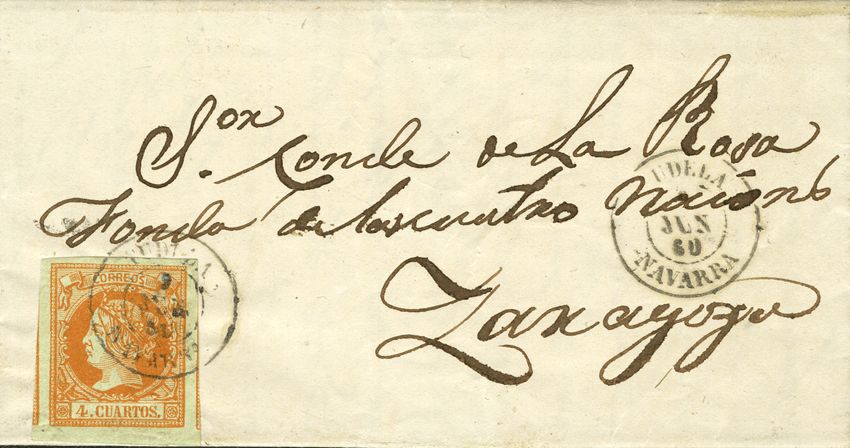 Sor. Conde de La Rosa
Fonda de las cuatro Nacions
Zaragoza
TUDELA
JUN
60
NAVARRA
CORREOS
4. CUARTOS.